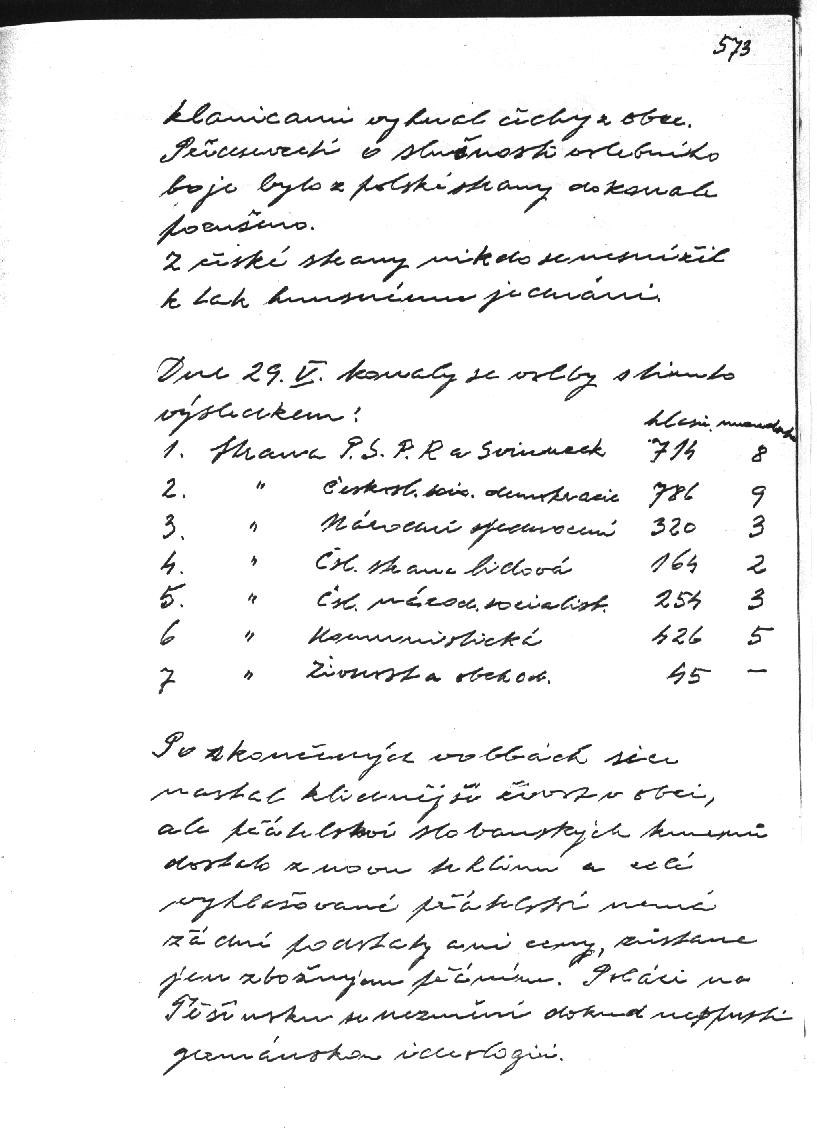 573
klanicami vyhnat čechy z obce.
Přesvědčí o slušnosti volebního
boje bylo z polské strany dokonale
porušeno.
Z české strany nikdo se nesnížil
k tak hnusnému jednání.
Dne 29. V. konaly se volby s tímto
výsledkem:
hlasů, mandátů
1. Strana P.S.P.R a Svinneck 714 8
2. " Českosl. soc. demokracie 786 9
3. " Národní sjednocení 320 3
4. " Čsl. strana lidová 164 2
5. " Čsl. národ. socialist. 254 3
6 " Komunistická 426 5
7 " Živnost a obchod. 45 —
Po skončených volbách sice
nastal klidnější život v obci,
ale přátelství slovanských kmenů
dostalo znovu trhlinu a celé
vyhlašované přátelství nemá
žádné podstaty ani ceny, zůstane
jen zbožným přáním. Poláci na
Těšínsku se nezmění dokud neopustí
germánskou ideologii.